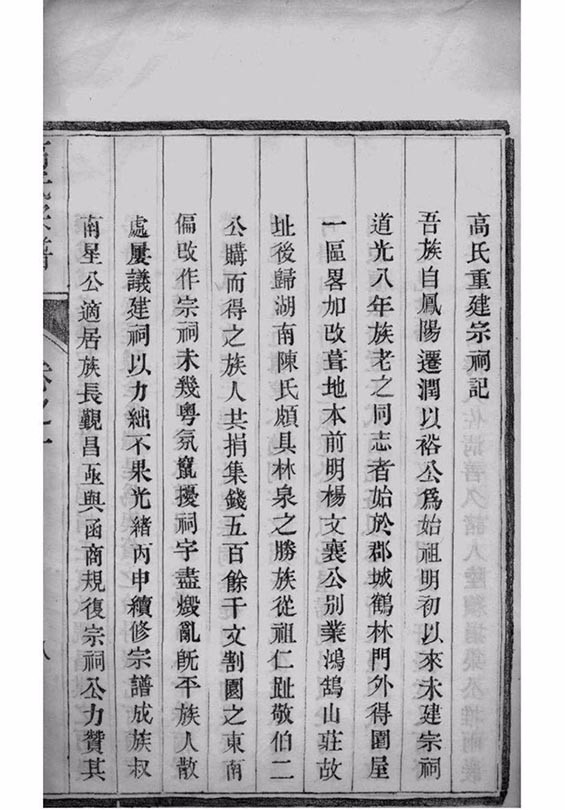 高氏重建宗祠記
吾族自鳳陽遷潤以裕公爲始祖明初以來未建宗祠
道光八年族老之同志者始於郡城鶴林門外得園屋
一區畧加改葺地本前明楊文襄公別業鴻鵠山莊故
址後歸湖南陳氏頗具林泉之勝族從祖仁趾敬伯二
公購而得之族人共捐集錢五百餘千文割園之東南
偏改作宗祠未幾粵氛竄擾祠宇盡燬亂旣平族人散
處屢議建祠以力絀不果光緒丙申續修宗譜成族叔
南星公適居族長覲昌亟與函商規復宗祠公力贊其
高氏家譜
卷之一
八